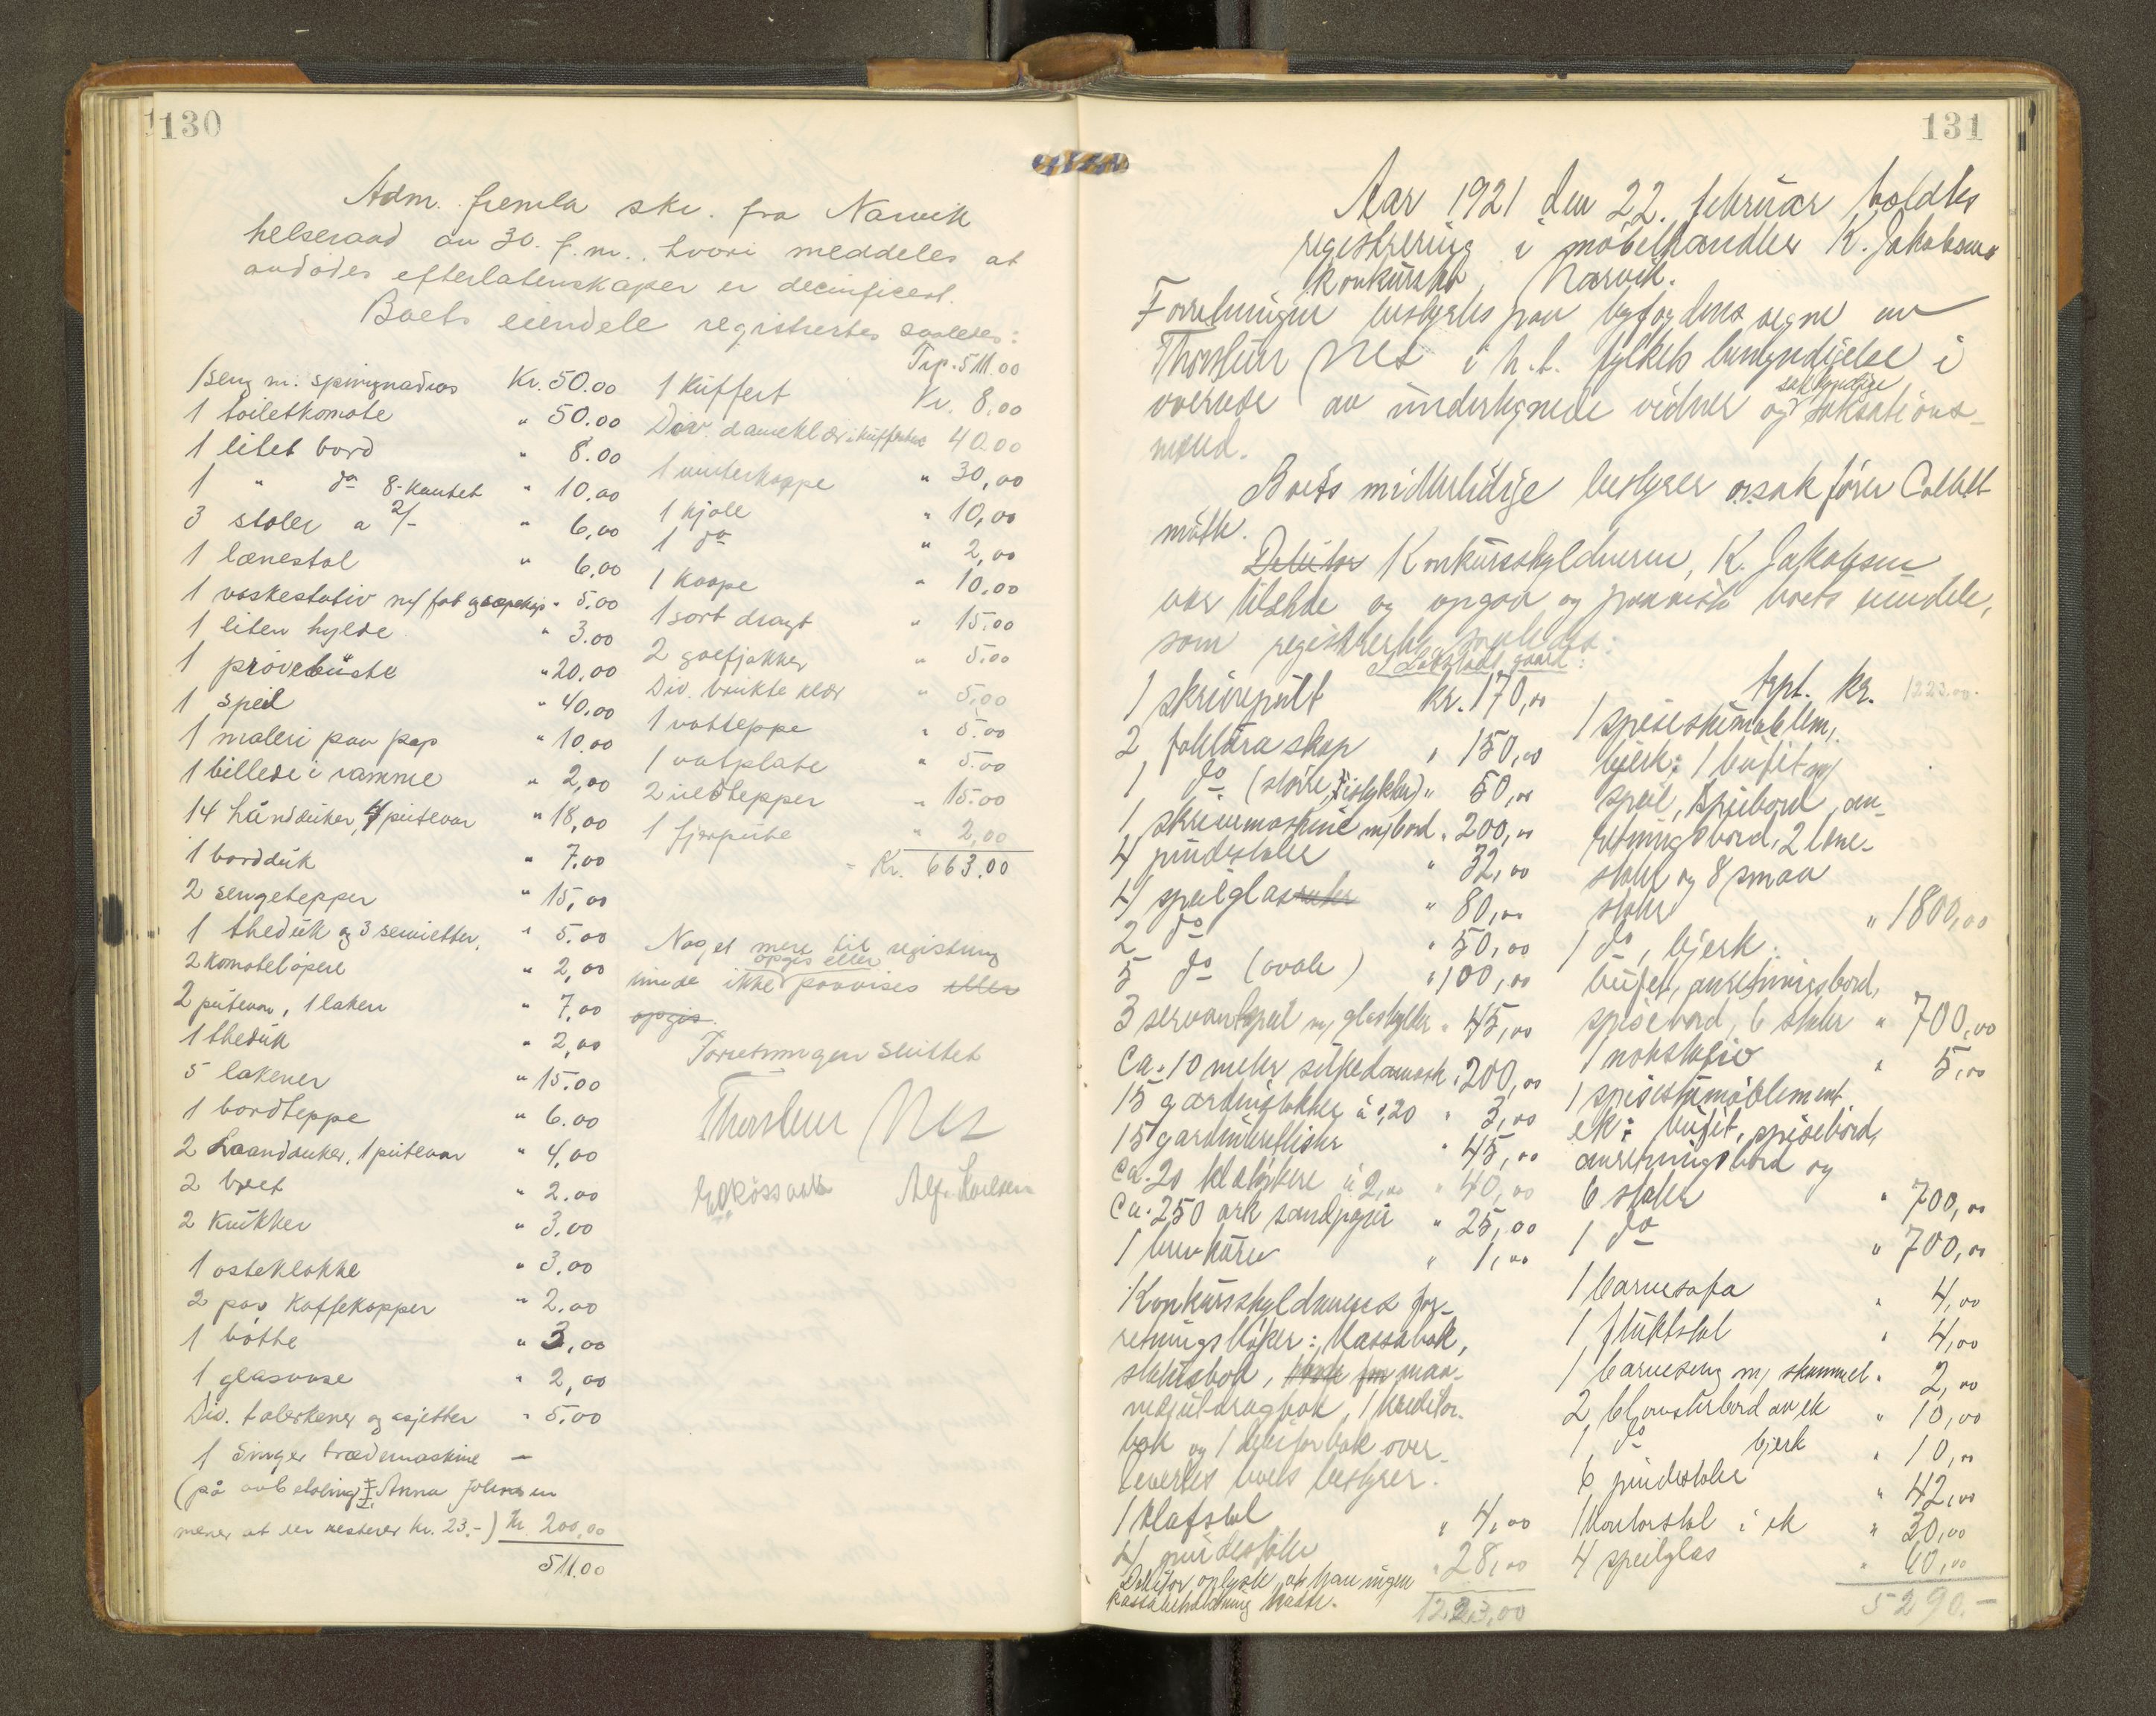 130
Adm. fremla skr. fra Narvik
helseraad av 30. f.m., hvori meddeles at
avdødes efterlatenskaper er decinficert.
Boets eiendele registrertes saaledes:
1 seng m. springmadras Kr. 50.00
1 toiletkomode " 50.00
1 litet bord " 8.00
1 " do 8-kantet " 10,00
3 stoler a 2/- " 6,00
1 lænestol " 6,00
1 vaskestativ m/ fat og sæpekop " 5.00
1 liten hylde " 3.00
1 prøvebüste " 20.00
1 speil " 40,00
1 maleri paa pap " 10.00
1 billede i ramme " 2,00
14 håndduker, 4 putevar " 18,00
1 bordduk " 7.00
2 sengetepper " 15,00
1 theduk og 3 servietter, " 5.00
2 komodeløpere " 2,00
2 putevar, 1 laken " 7,00
1 theduk " 2,00
5 lakener " 15.00
1 bordteppe " 6.00
2 haandduker, 1 putevar " 4,00
2 bret " 2.00
2 krukker " 3.00
1 osteklokke " 3,00
2 par kaffekopper " 2.00
1 bøtte " 3,00
1 glasvase " 2,00
Div. talerkener og asjetter " 5.00
1 Singer trædemaskine —
(på avbetaling Anna Johnsen
mener at der resterer kr. 23.-) Kr. 200,00
511.00
Trp. 511.00
1 kuffert Kr. 8,00
Div. dameklær i kufferten 40.00
1 vinterkaape " 30,00
1 kjole " 10,00
1 do " 2,00
1 kaape " 10.00
1 sort dragt " 15.00
2 golfjakker " 5.00
Div. brukte klær " 5,00
1 vatteppe " 5.00
1 vatplate " 5.00
2 uldtepper " 15.00
1 fjærpute " 2,00
Kr. 663.00
Noget mere til registrering
opgis eller
unde ikke paavises eller
opgis.
Forretningen sluttet
Thorleur Nes
Alf. Karlsen
131
Aar 1921 den 22. februar holdtes
registrering i møbelhandler K. Jakobsens
konkursbo, Narvik.
Forretningen bestyrtes paa byfogdens vegne av
Thorleur Nes i h.t. fylkets bemyndigelse i
sakkyndige
overvær av undertegnede vidner og taksations-
mænd.
Boets midlertidige bestyrer o.sakfører Colbet
møtte.
Debitor Konkursskyldneren, K. Jakobsen
var tilstede og opgav og paaviste boets eiendele,
som registrertes saaledes:
I Løkstads gaard:
1 skrivepult kr. 170,00
2 faktura skap " 150,00
1 do (større, ) " 50,00
1 skrivemaskine m/bord " 200,00
4 pindestoler " 32,00
4 speilglasruter " 80,00
2 do " 50,00
5 do (ovale) " 100,00
3 servantspeil m/ glashyller " 45,00
Ca. 10 meter silkedamask " 200,00
15 gardinstokker à 0,20 " 3,00
15 gardinbreflister " 45,00
Ca. 20 klatykere à 2,00 " 40,00
Ca. 250 ark sandpapir " 25,00
1 brevkurv " 1,00
Konkursskyldnerens for-
retningsbøker: Kassabok,
statusbok, maa-
nedsutdragbok, 1 kreditor-
bok og 1 debitorbok over-
leveres boets bestyrer.
1 klafstol " 4,00
4 pindestoler " 28,00
Debitor oplyste, at han ingen
kassabeholdning hadde.
1223,00
trpt. kr. 1223.00.
1 spisestuemøblem,
bjerk: 1 bufet m/
speil, spisebord, an-
retningsbord, 2 lene-
stoler og 8 smaa
stoler " 1800,00
1 do, bjerk:
bufet, anretningsbord,
spisebord, 6 stoler " 700,00
1 notestativ " 5,00
1 spisestuemøblement
ek: bufet, spisebord,
anretningsbord og
6 stoler " 700,00
1 do " 700,00
1 barnesofa " 4,00
1 fluktstol " 4,00
1 barneseng m/ skammel " 2,00
2 blomsterbord av ek " 10,00
1 do bjerk " 10,00
6 pindestoler " 42,00
1 kontorstol i ek " 30,00
4 speilglas " 60,00
5290.-